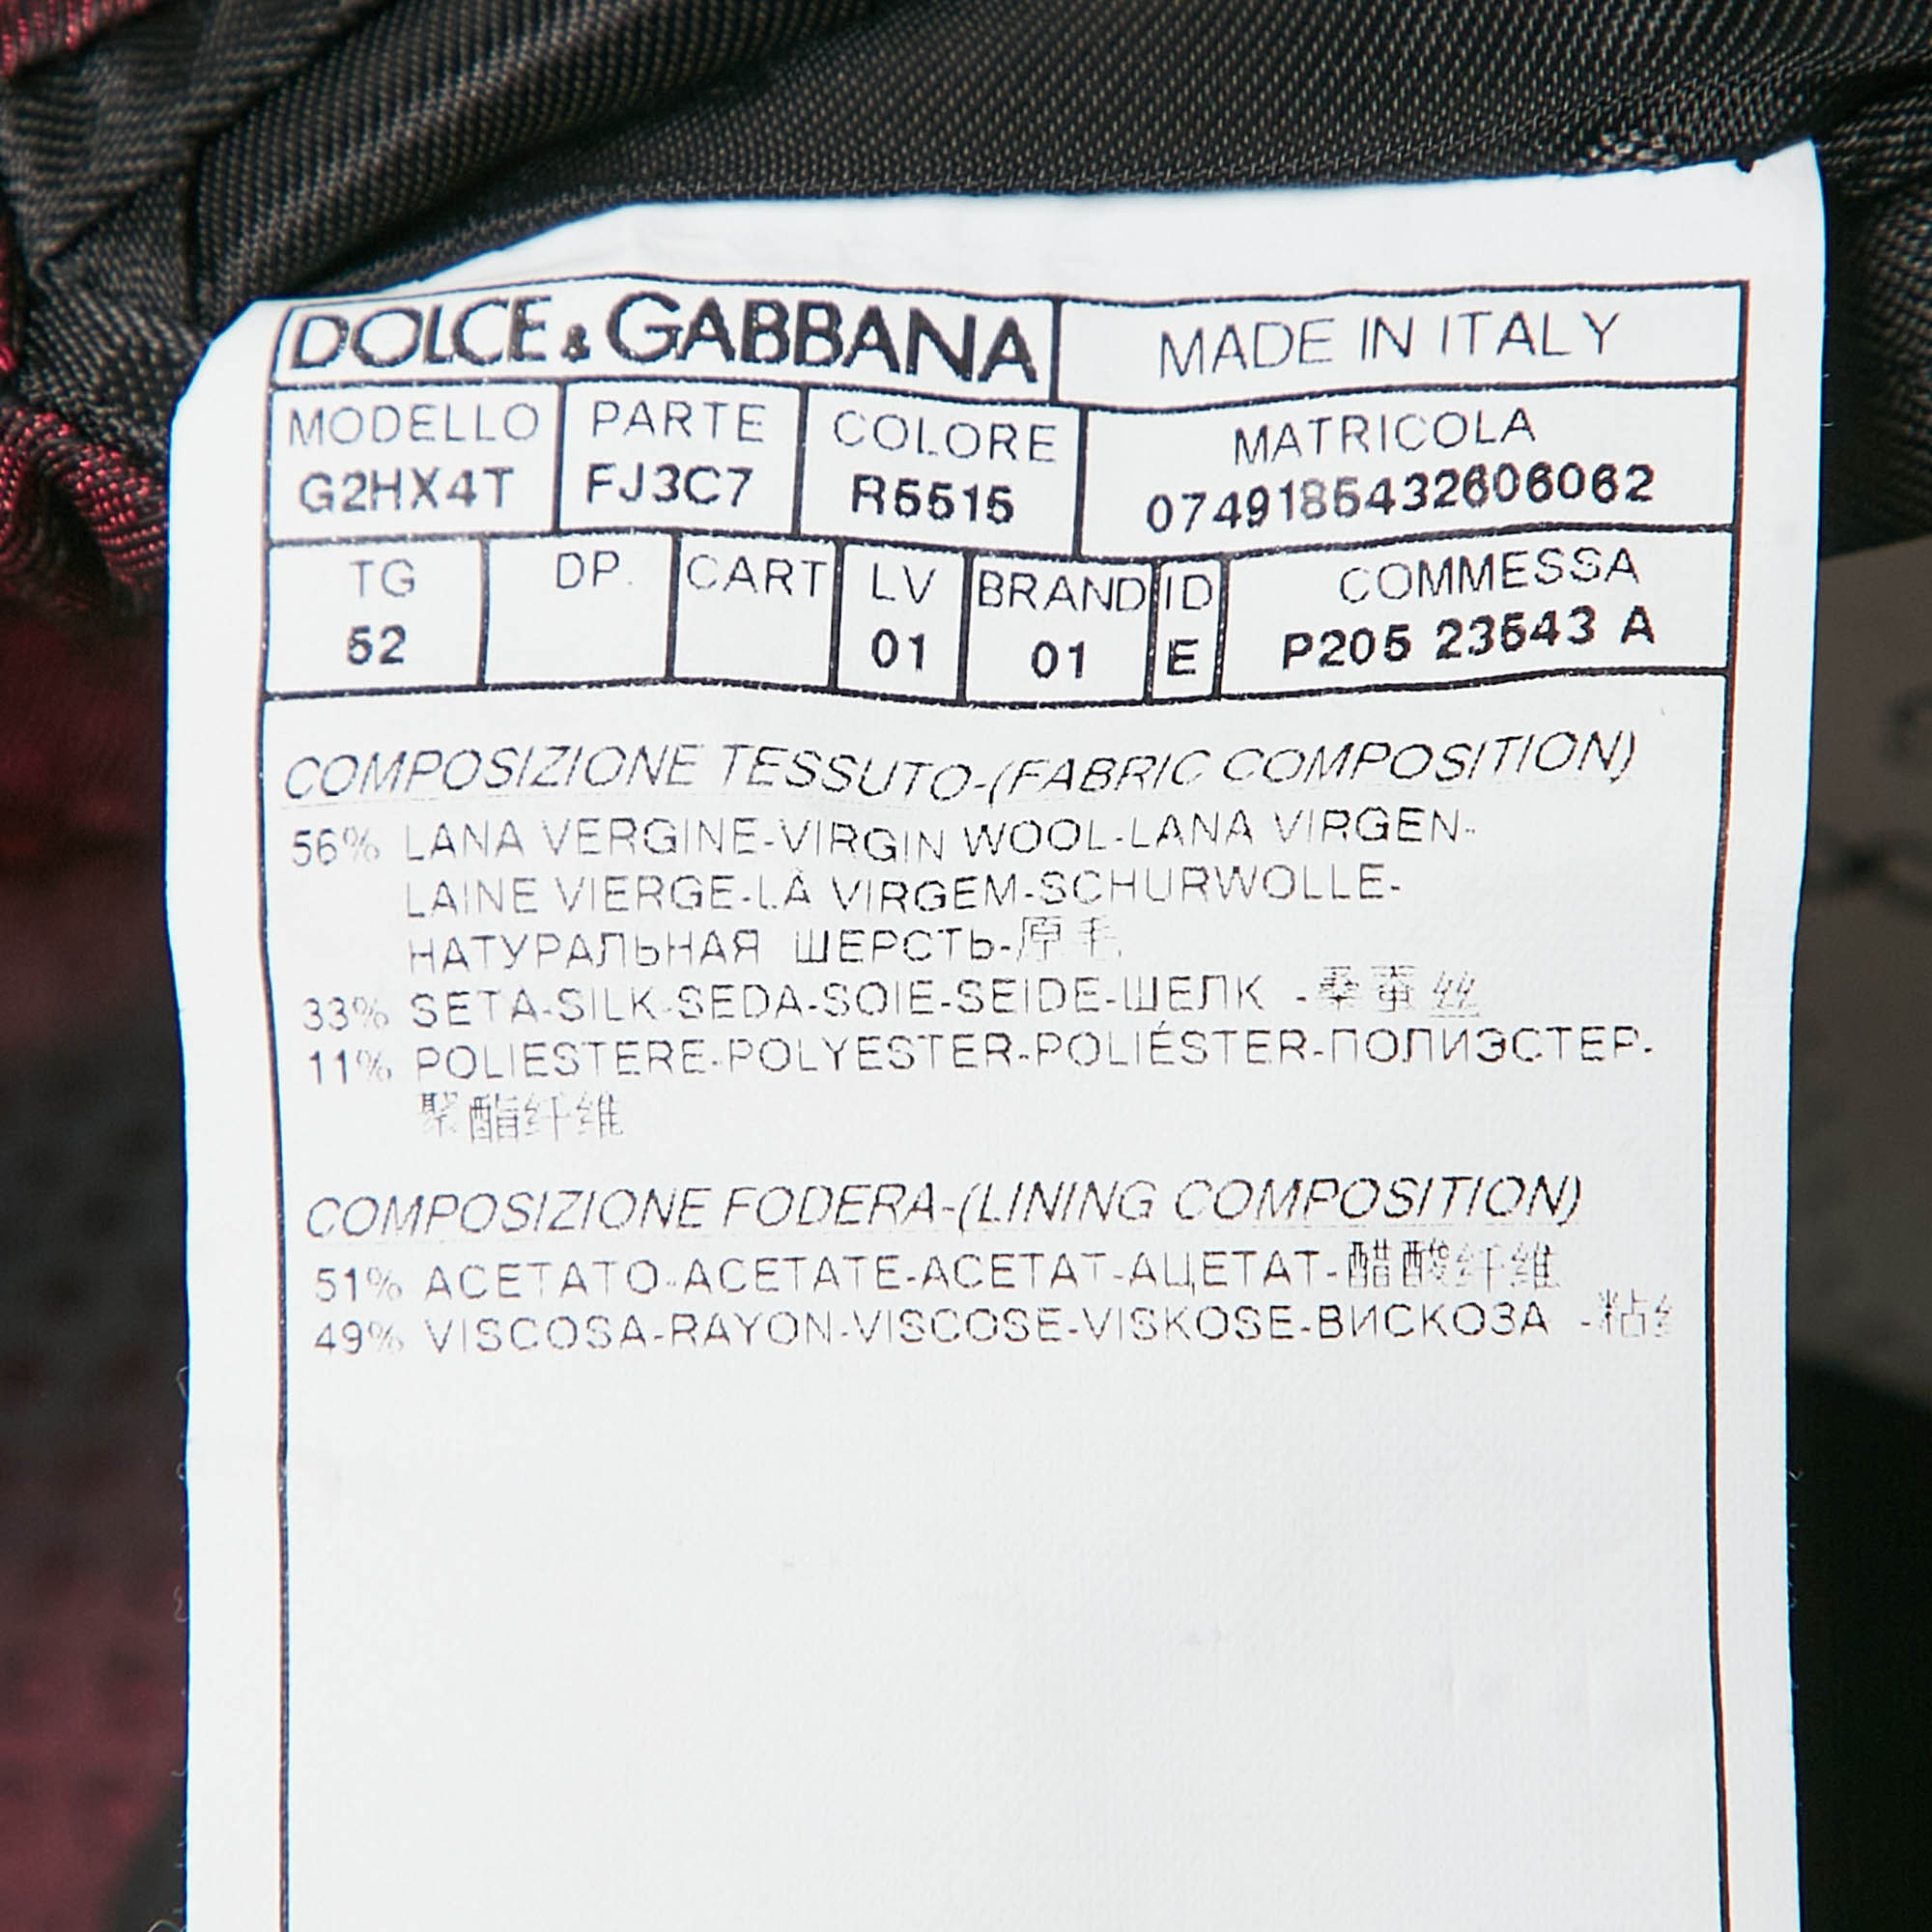 DOLCE & GABBANA MADE IN ITALY
MODELLO PARTE COLORE MATRICOLA
G2HX4T FJ3C7 R5515 0749185432606062
TG DP. CART LV BRAND ID COMMESSA
52 01 01 E P205 23543 A
COMPOSIZIONE TESSUTO-(FABRIC COMPOSITION)
56% LANA VERGINE-VIRGIN WOOL-LANA VIRGEN-
LAINE VIERGE-LÃ VIRGEM-SCHURWOLLE-
НАТУРАЛЬНАЯ ШЕРСТЬ-原毛
33% SETA-SILK-SEDA-SOIE-SEIDE-ШЕЛК -桑蚕丝
11% POLIESTERE-POLYESTER-POLIÉSTER-ПОЛИЭСТЕР-
聚酯纤维
COMPOSIZIONE FODERA-(LINING COMPOSITION)
51% ACETATO-ACETATE-ACETAT-АЦЕТАТ-醋酸纤维
49% VISCOSA-RAYON-VISCOSE-VISKOSE-ВИСКОЗА -粘